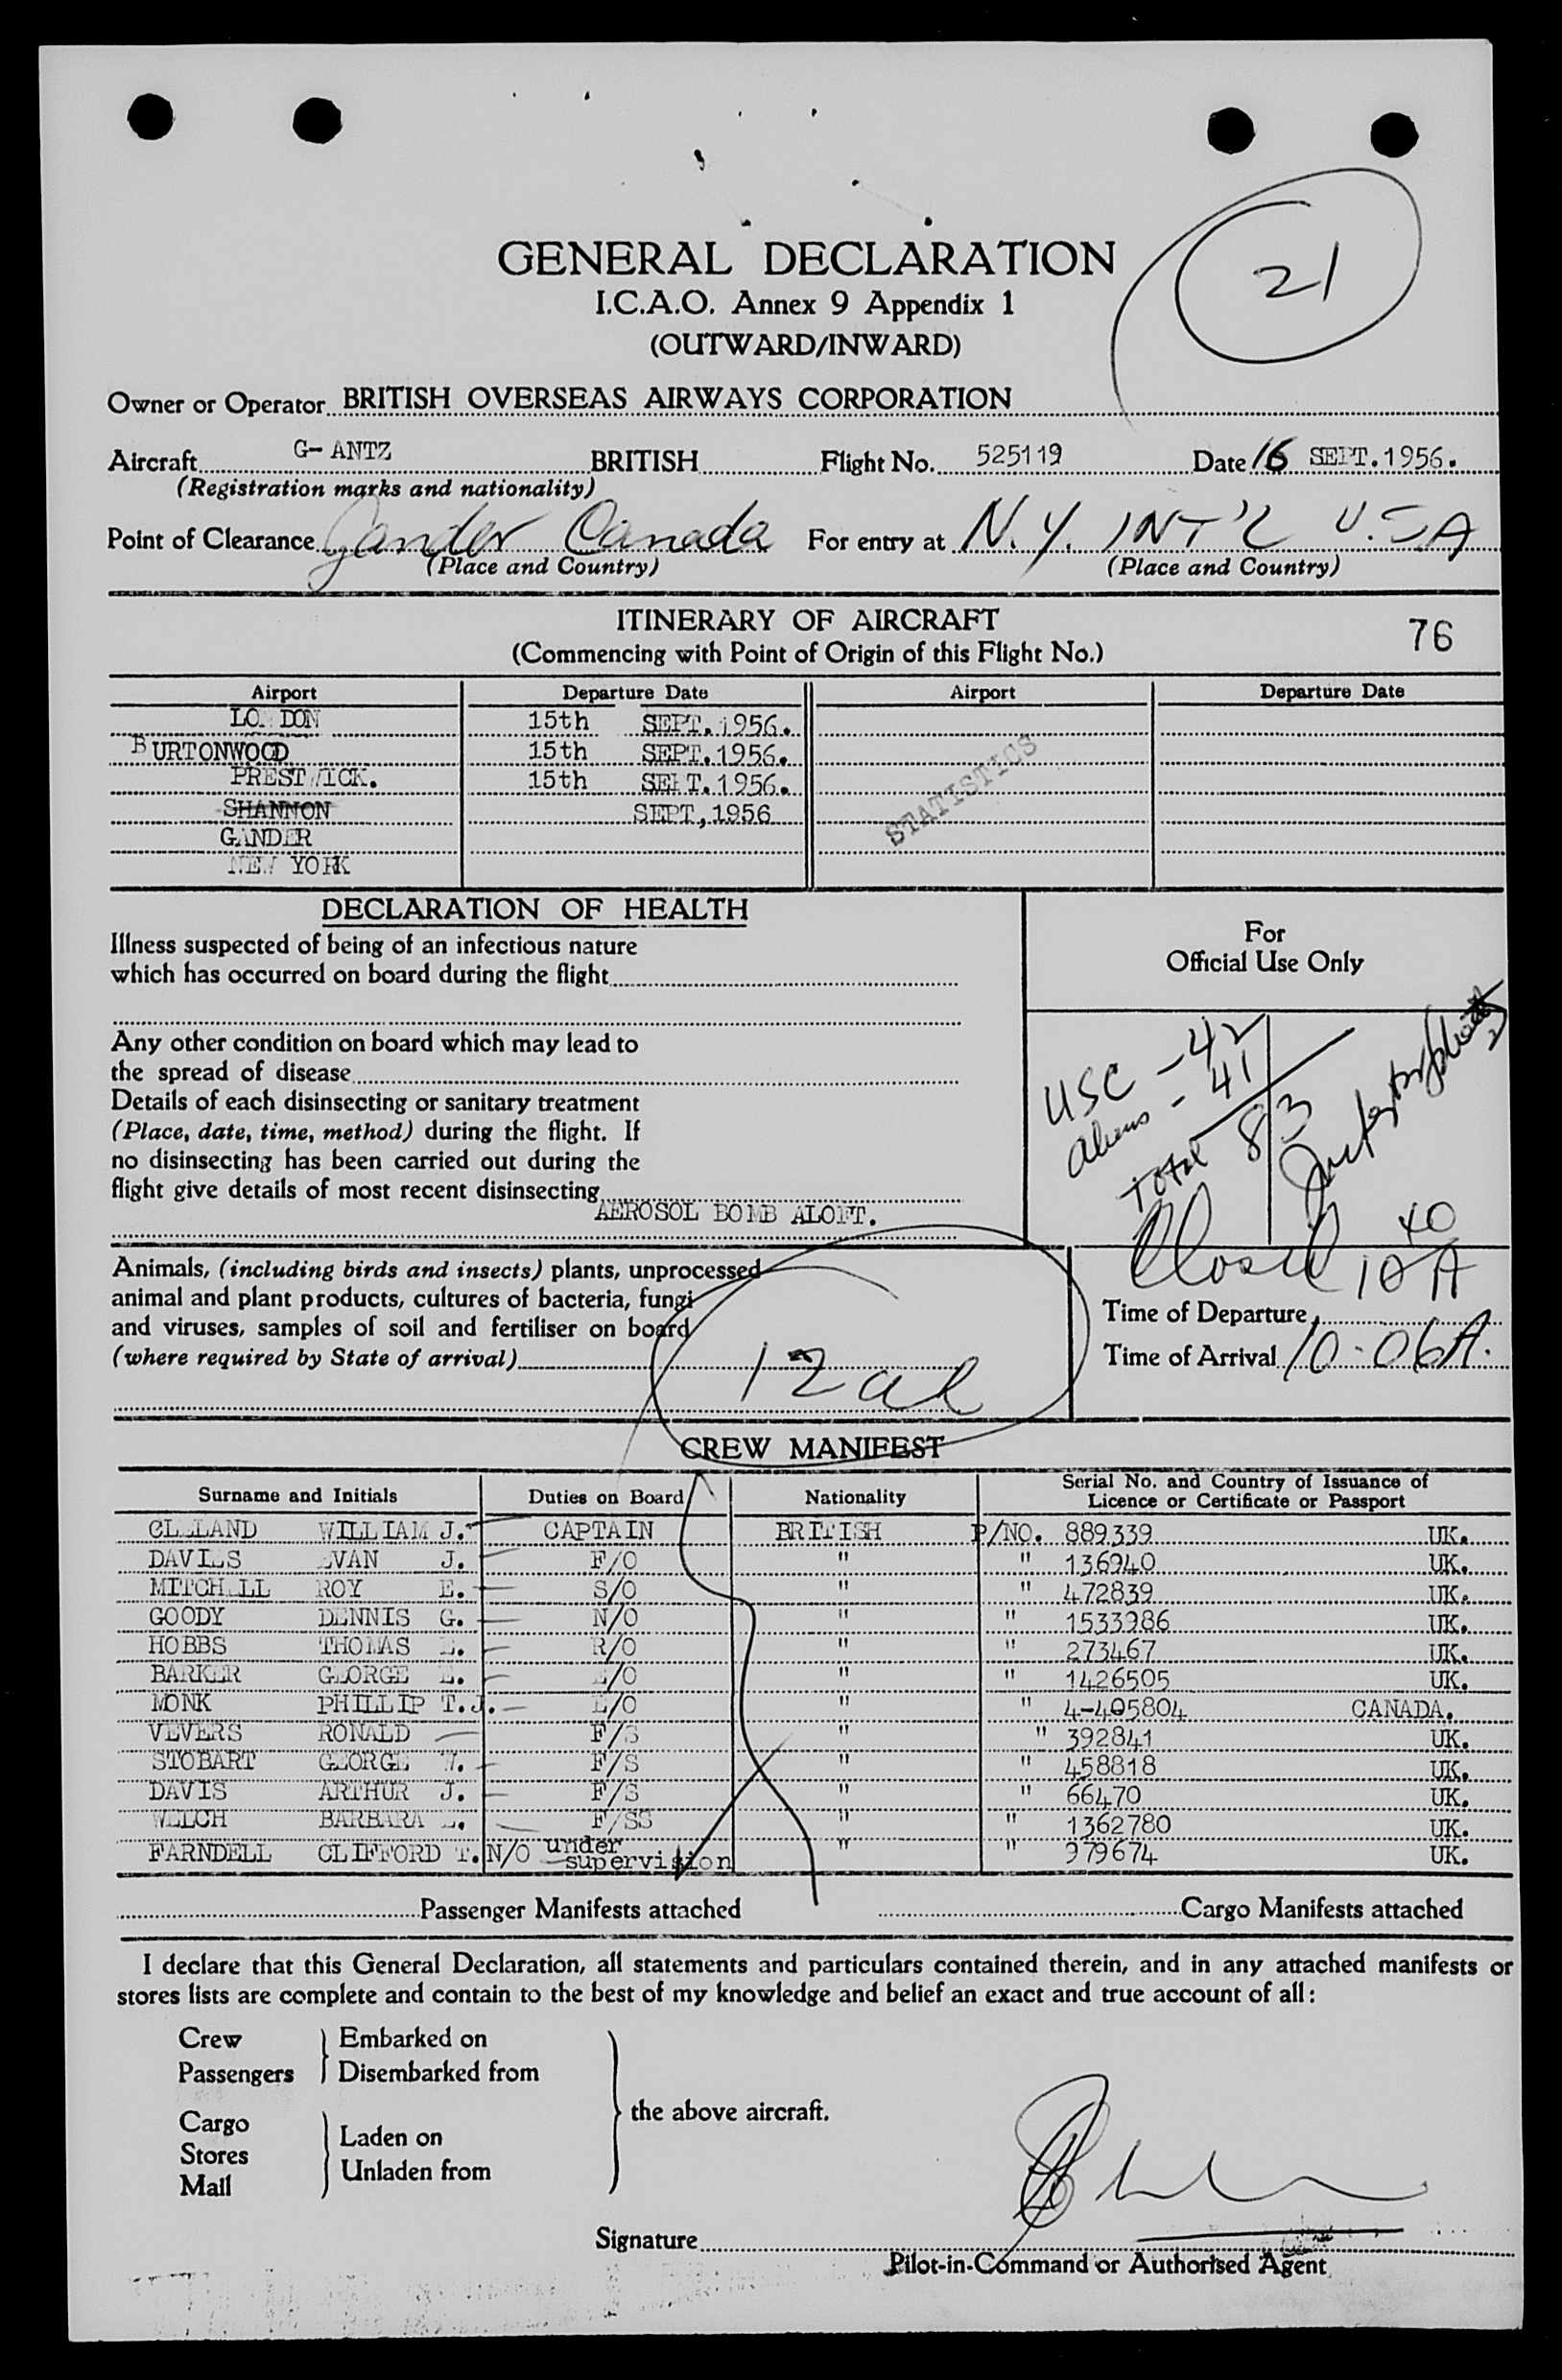 21
GENERAL DECLARATION
I.C.A.O. Annex 9 Appendix 1
(OUTWARD/INWARD)
Owner or Operator BRITISH OVERSEAS AIRWAYS CORPORATION
Aircraft G- ANTZ BRITISH Flight No. 525119 Date 16 SEPT. 1956.
(Registration marks and nationality)
Point of Clearance Gander Canada For entry at N.Y. INT'L U.S.A
(Place and Country) (Place and Country)
ITINERARY OF AIRCRAFT
(Commencing with Point of Origin of this Flight No.) 76
Airport Departure Date Airport Departure Date
LONDON 15th SEPT. 1956.
BURTONWOOD 15th SEPT. 1956.
PRESTWICK. 15th SEPT. 1956.
SHANNON SEPT, 1956
GANDER
NEW YORK
STATISTICS
DECLARATION OF HEALTH
For
Official Use Only
Illness suspected of being of an infectious nature
which has occurred on board during the flight
Any other condition on board which may lead to
the spread of disease
Details of each disinsecting or sanitary treatment
(Place, date, time, method) during the flight. If
no disinsecting has been carried out during the
flight give details of most recent disinsecting
AEROSOL BOMB ALOFT.
USC - 42
Aliens - 41
Total 83
Closed 10 40 A
Animals, (including birds and insects) plants, unprocessed
animal and plant products, cultures of bacteria, fungi
and viruses, samples of soil and fertiliser on board
(where required by State of arrival)
12 al
Time of Departure
Time of Arrival 10-06A.
CREW MANIFEST
Surname and Initials Duties on Board Nationality Serial No. and Country of Issuance of
Licence or Certificate or Passport
CLELAND WILLIAM J. CAPTAIN BRITISH P/NO. 889339 UK.
DAVIES EVAN J. F/O " " 136940 UK.
MITCHELL ROY E. S/O " " 472839 UK.
GOODY DENNIS G. N/O " " 1533986 UK.
HOBBS THOMAS E. R/O " " 273467 UK.
BARKER GEORGE E. E/O " " 1426505 UK.
MONK PHILLIP T.J. E/O " " 4-405804 CANADA.
VEVERS RONALD F/S " " 392841 UK.
STOBART GEORGE W. F/S " " 458818 UK.
DAVIS ARTHUR J. F/S " " 66470 UK.
WELCH BARBARA E. F/SS " " 1362780 UK.
FARNDELL CLIFFORD T. N/O under supervision " " 979674 UK.
Passenger Manifests attached Cargo Manifests attached
I declare that this General Declaration, all statements and particulars contained therein, and in any attached manifests or
stores lists are complete and contain to the best of my knowledge and belief an exact and true account of all:
Crew Embarked on
Passengers Disembarked from
the above aircraft.
Cargo
Laden on
Stores
Unladen from
Mail
Signature
Pilot-in-Command or Authorised Agent